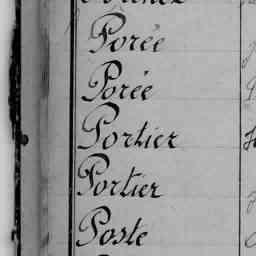 Porée
Porée
Portier
Portier
Poste